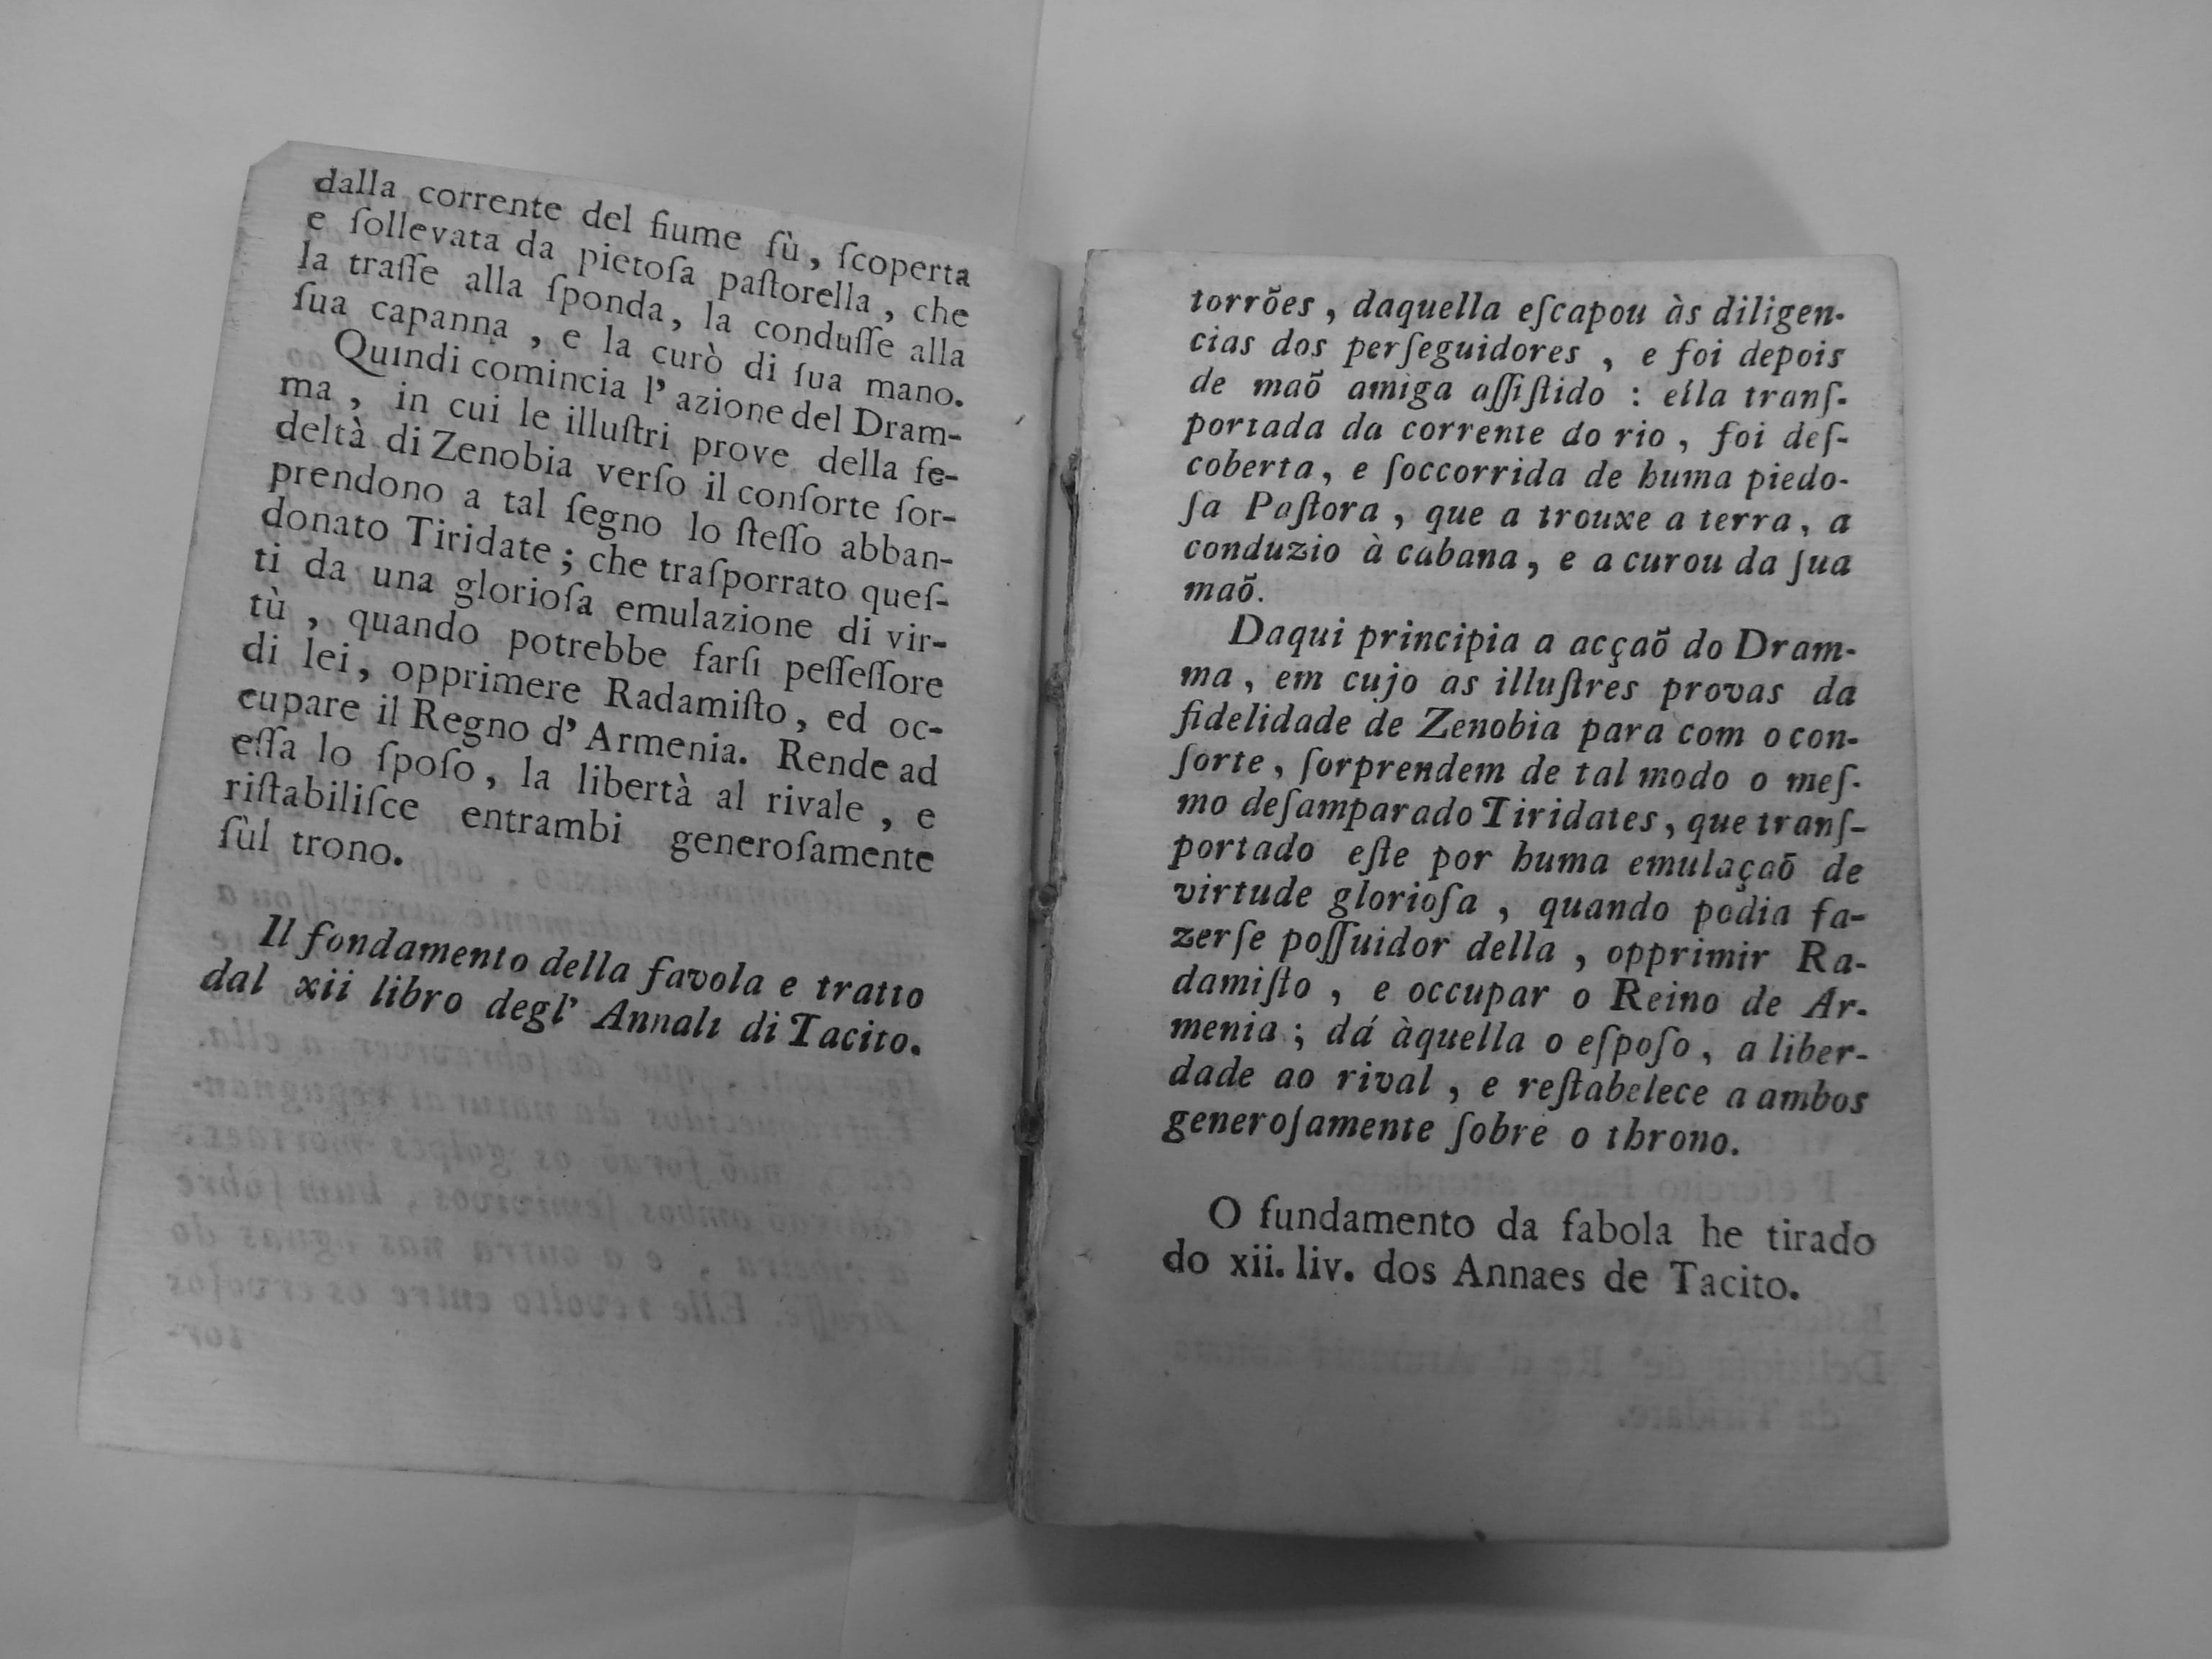 dalla corrente del fiume fù, ſcoperta
e ſollevata da pietoſa paſtorella, che
la traſſe alla ſponda, la conduſſe alla
ſua capanna, e la curò di ſua mano.
Quindi comincia l'azione del Dram-
ma, in cui le illuſtri prove della fe-
deltà di Zenobia verſo il conſorte ſor-
prendono a tal ſegno lo ſteſſo abban-
donato Tiridate; che traſporrato queſ-
ti da una glorioſa emulazione di vir-
tù, quando potrebbe farſi peſſeſſore
di lei, opprimere Radamiſto, ed oc-
cupare il Regno d'Armenia. Rende ad
eſſa lo ſpoſo, la libertà al rivale, e
riſtabiliſce entrambi generoſamente
ſùl trono.
Il fondamento della favola e tratto
dal xii libro degl' Annali di Tacito.
torrões, daquella eſcapou às diligen-
cias dos perſeguidores, e foi depois
de maõ amiga aſſiſtido: ella tranſ-
portada da corrente do rio, foi deſ-
coberta, e ſoccorrida de huma piedo-
ſa Paſtora, que a trouxe a terra, a
conduzio à cabana, e a curou da ſua
maõ.
Daqui principia a acçaõ do Dram-
ma, em cujo as illuſtres provas da
fidelidade de Zenobia para com o con-
ſorte, ſorprendem de tal modo o meſ-
mo deſamparado Tiridates, que tranſ-
portado eſte por huma emulaçaõ de
virtude glorioſa, quando podia fa-
zerſe poſſuidor della, opprimir Ra-
damiſto, e occupar o Reino de Ar-
menia; dá àquella o eſpoſo, a liber-
dade ao rival, e reſtabelece a ambos
generoſamente ſobre o throno.
O fundamento da fabola he tirado
do xii. liv. dos Annaes de Tacito.